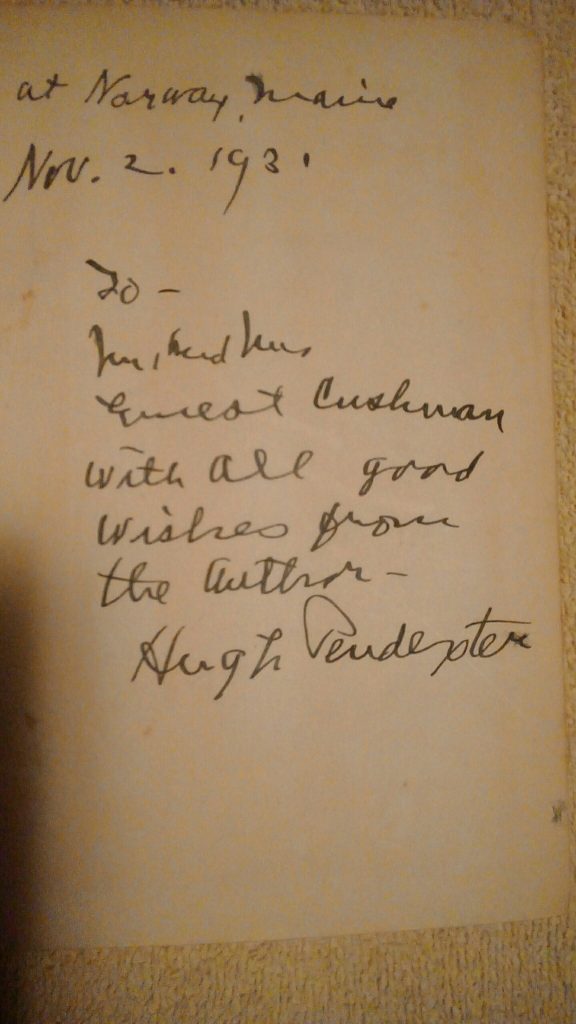 at Norway, Maine
Nov. 2. 1931
To –
Mr, and Mrs,
Ernest Cushman
With all good
Wishes from
the Author –
Hugh Pendexter